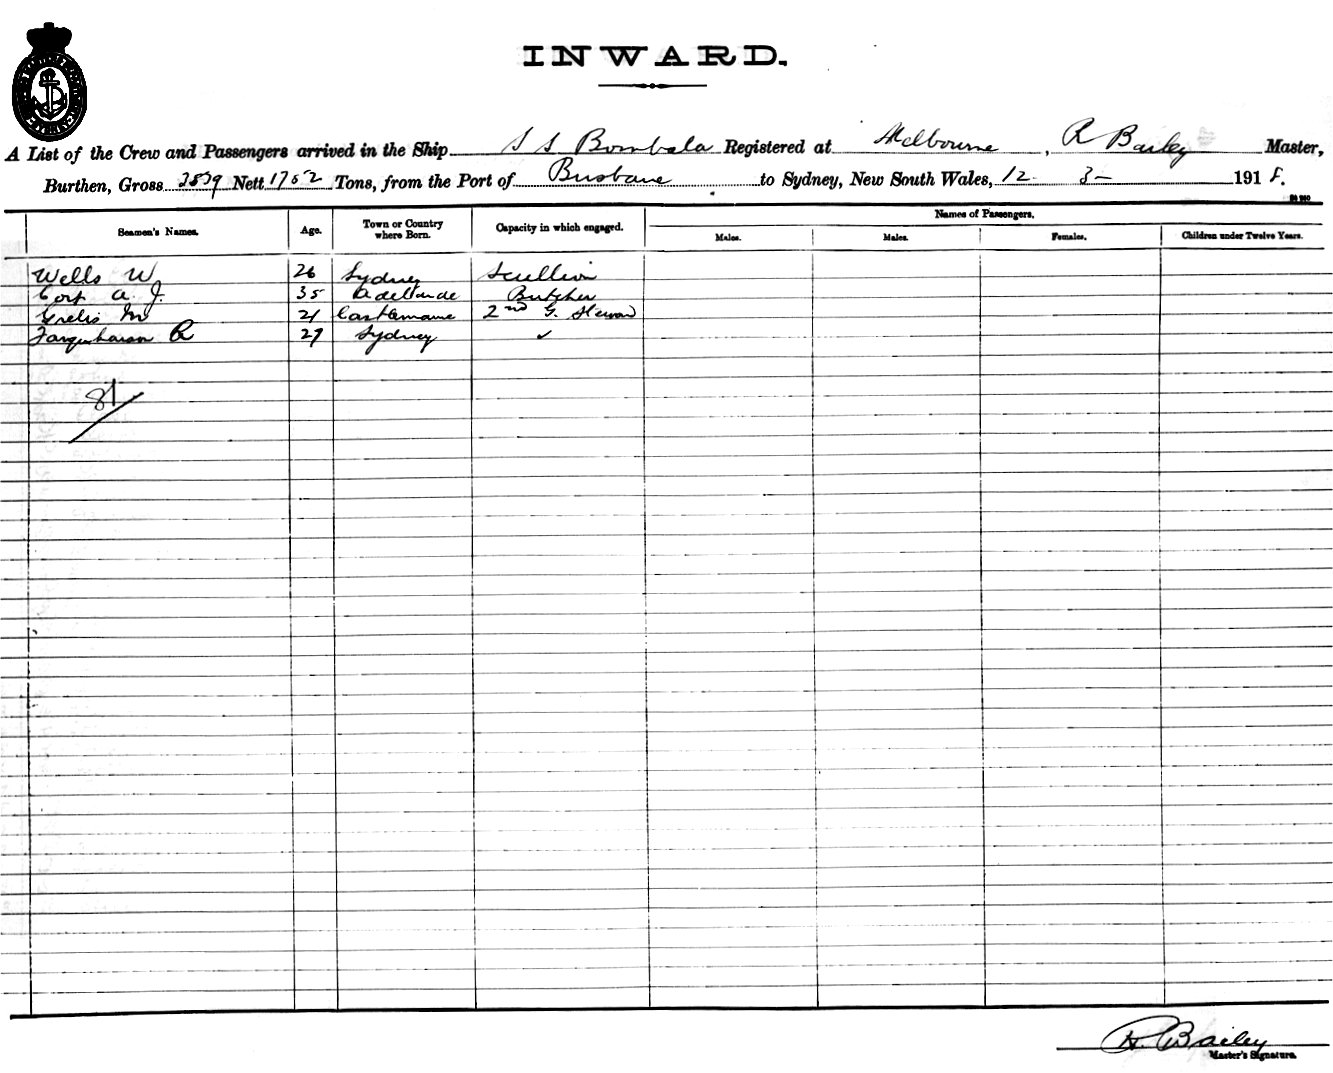 INWARD.
A List of the Crew and Passengers arrived in the Ship S S Bombala Registered at Melbourne, R Bailey Master,
Burthen, Gross 3539 Nett 1752 Tons, from the Port of Brisbane to Sydney, New South Wales, 12 3 1918.
Names of Passengers.
Seamen's Names. Age. Town or Country where Born. Capacity in which engaged. Males. Males. Females. Children under Twelve Years.
Wells W 26 Sydney Scullion
A. J. 35 Adelaide Butcher
M 21 Castlemaine 2nd G. Steward
Farquharson R 27 Sydney ✓
81
R. Bailey
Master's Signature.